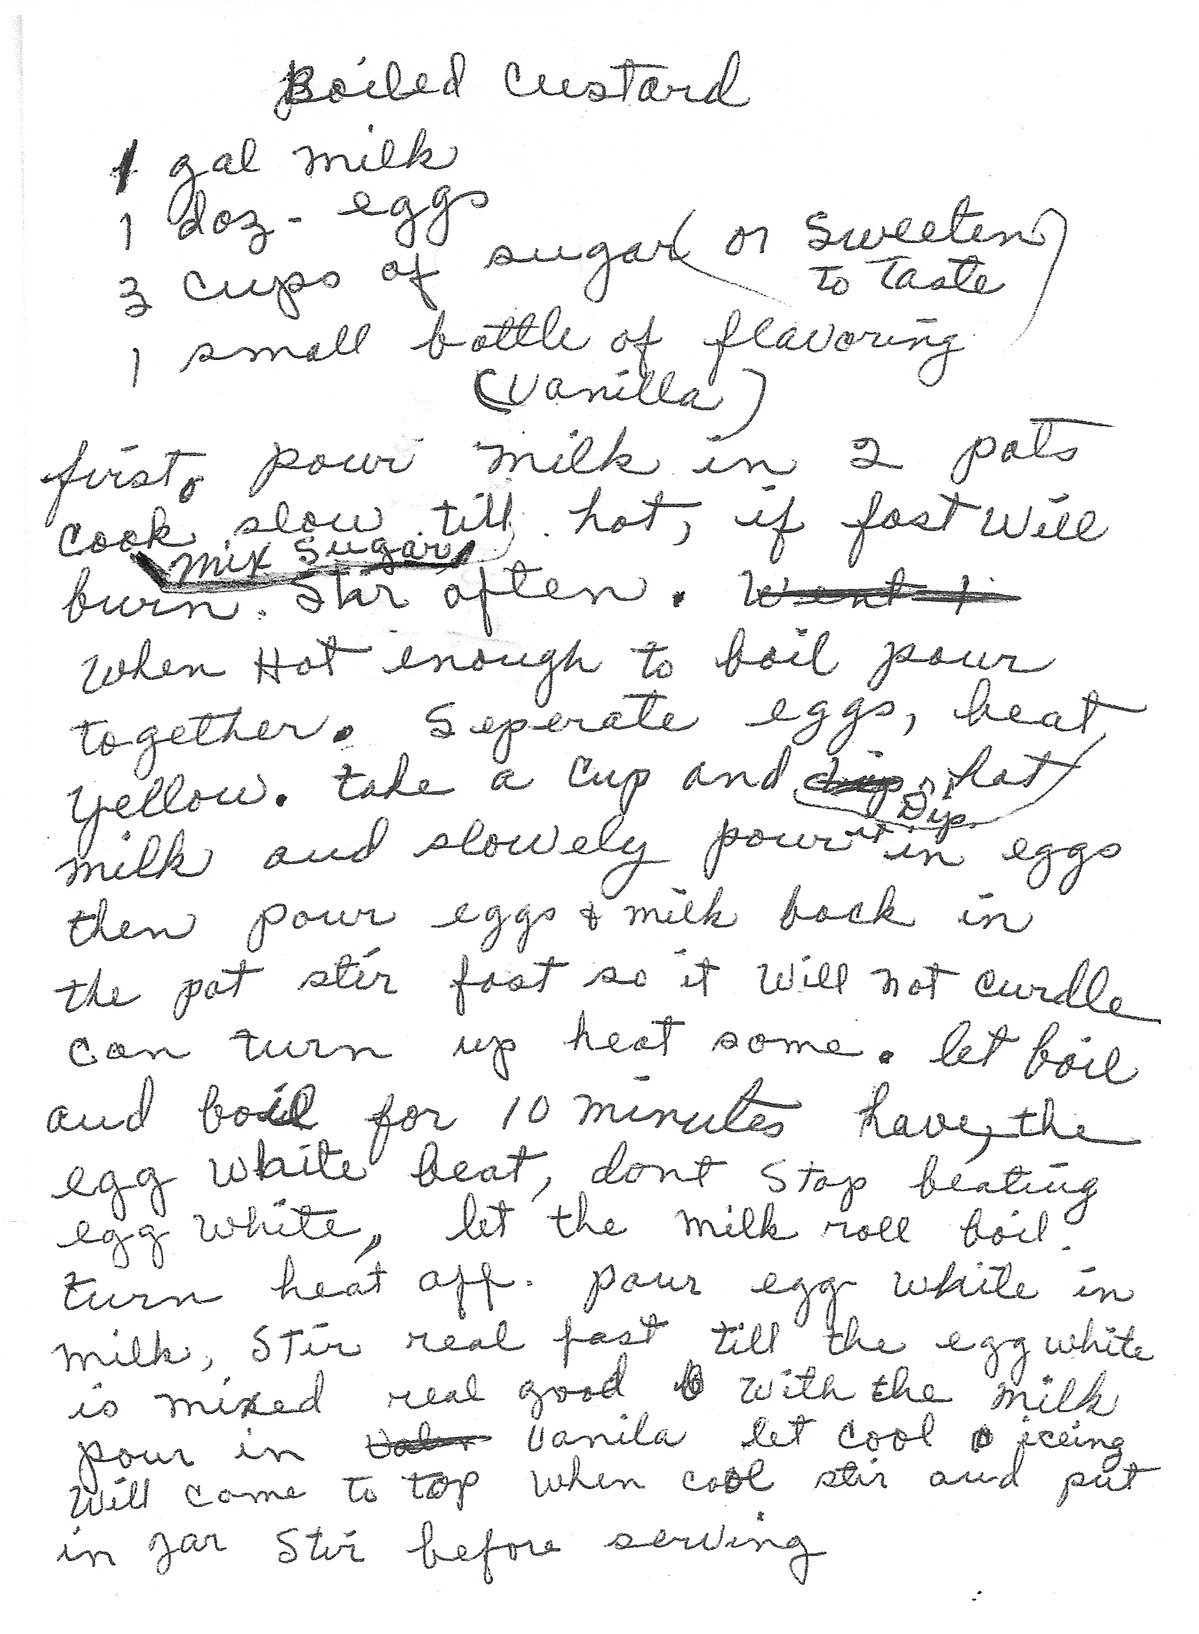 Boiled Custard
1 gal milk
1 doz - eggs
3 cups of sugar (or Sweeten
To Taste)
1 small bottle of flavoring
(Vanilla)
first, pour milk in 2 pots
cook slow till hot, if fast Will
mix Sugar
burn. Stir often. Went
When Hot enough to boil pour
together. Seperate eggs, beat
Yellow. take a cup and dip hot
Dip
milk and slowely pour it in eggs
then pour eggs & milk back in
the pot stir fast so it Will not curdle
can turn up heat some. let boil
and boil for 10 minutes have, the
egg White beat, dont Stop beating
egg White, let the milk roll boil.
turn heat off. pour egg White in
milk, STir real fast till the egg white
is mixed real good With the milk
pour in Vanila let cool iceing
Will come to top When cool stir and put
in jar Stir before serving